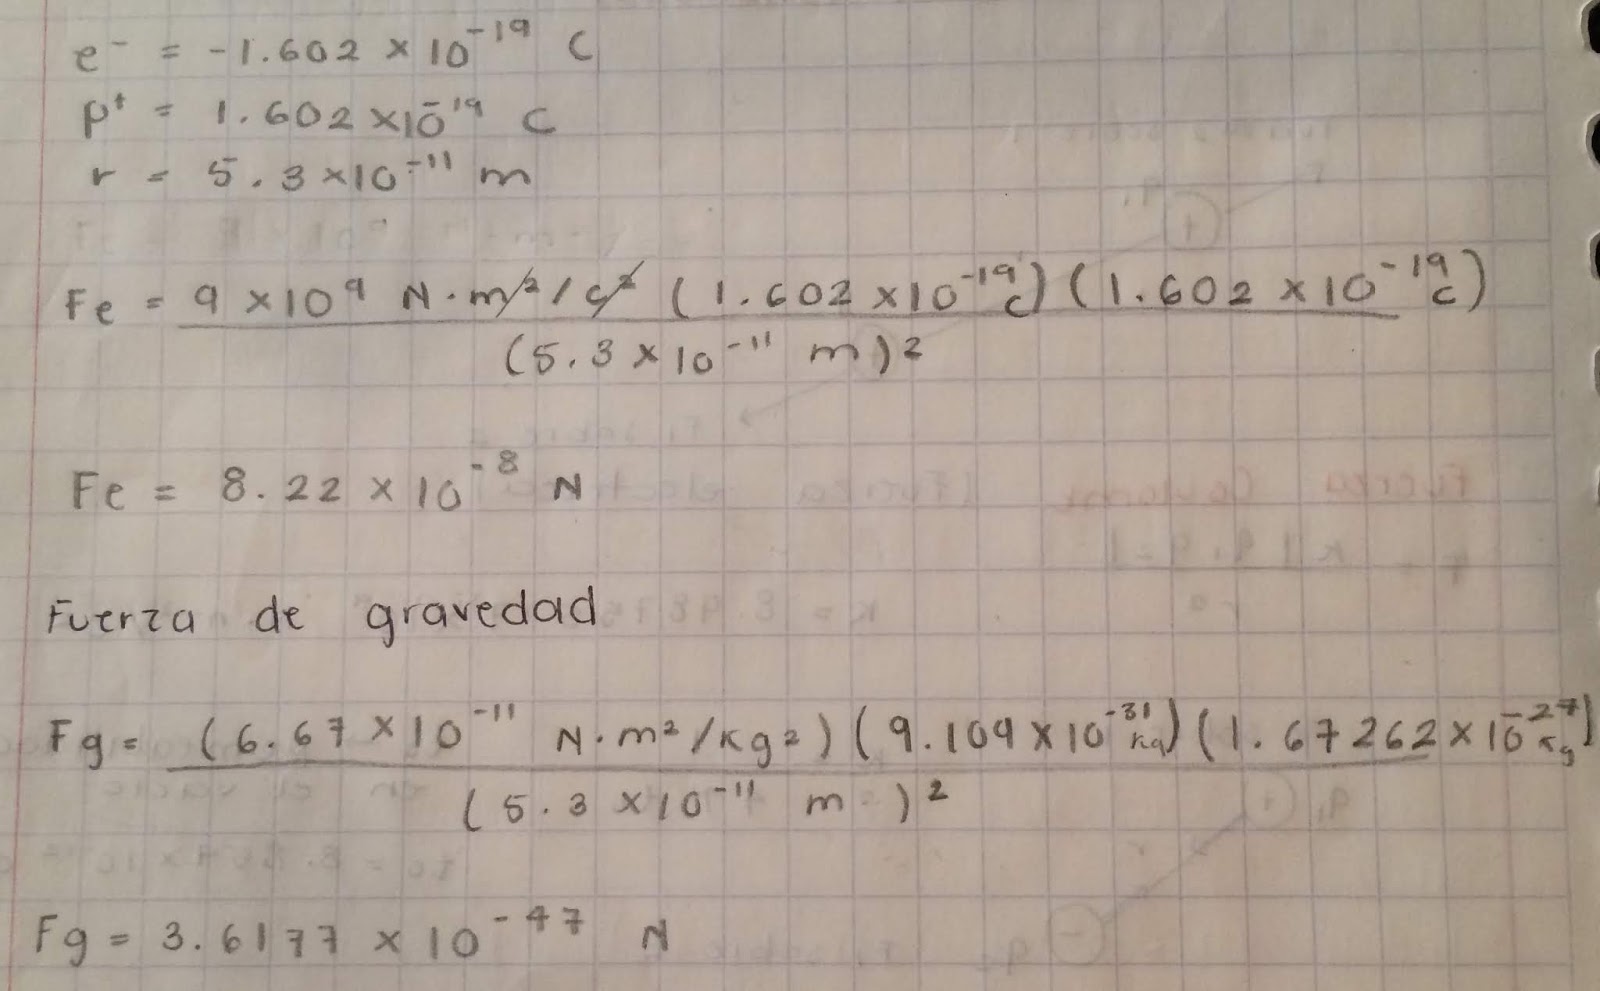 e⁻ = -1.602 × 10⁻¹⁹ C
p⁺ = 1.602 ×10⁻¹⁹ C
r = 5.3 ×10⁻¹¹ m
Fe = 9 ×10⁹ N·m²/c² (1.602 ×10⁻¹⁹ c) (1.602 ×10⁻¹⁹ c)
(5.3 × 10⁻¹¹ m)²
Fe = 8.22 × 10⁻⁸ N
Fuerza de gravedad
Fg = (6.67 × 10⁻¹¹ N·m²/kg²) (9.109 × 10⁻³¹ kg) (1.67262 × 10⁻²⁷ kg)
(5.3 ×10⁻¹¹ m)²
Fg = 3.6177 × 10⁻⁴⁷ N